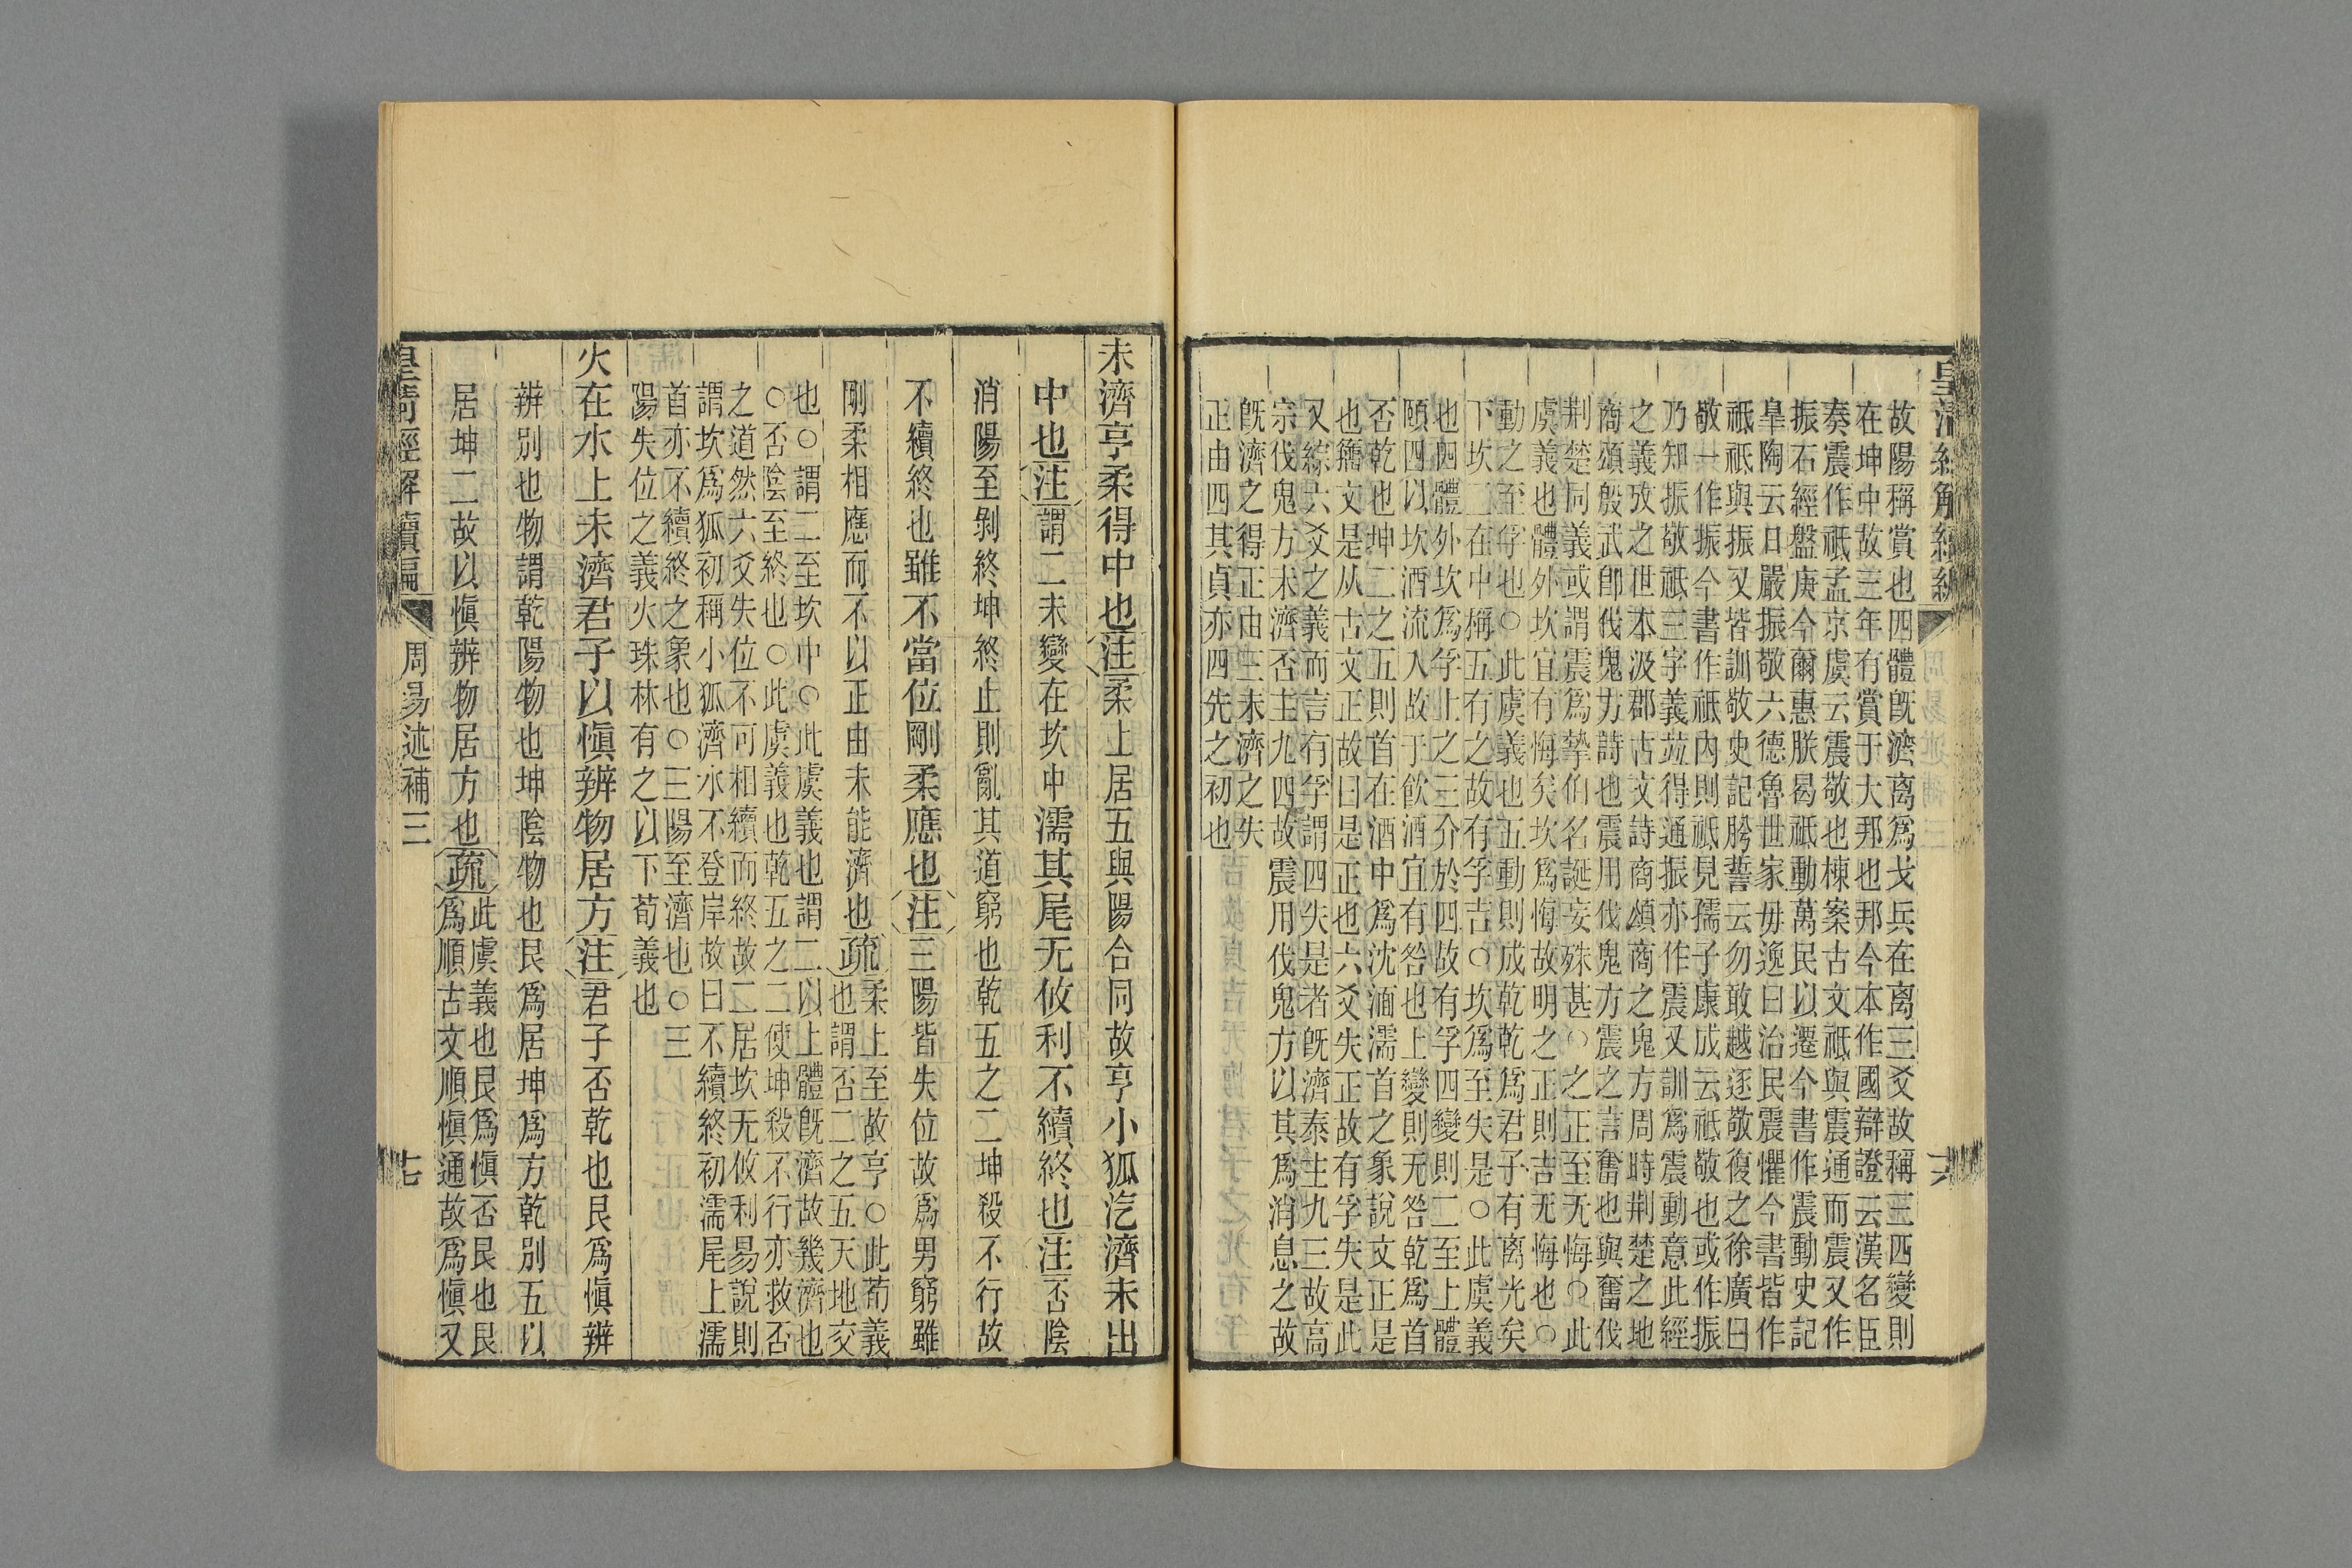 皇清經解續編
故陽稱賞也四體旣濟离爲戈兵在离三爻故稱三四變則
在坤中故三年有賞于大邦也邦今本作國辯證云漢名臣
奏震作祇孟京虞云震敬也棟案古文祗與震通而震又作
振石經盤庚今爾惠朕曷祗動萬民以遷今書作震動史記
臯陶云日嚴振敬六德魯世家毋逸曰治民震懼今書皆作
祗祗與振又皆訓敬史記肸誓云勿敢越逐敬復之徐廣曰
敬一作振今書作祗內則祗見孺子康成云祗敬也或作振
乃知振敬祗三字義竝得通振亦作震又訓爲震動意此經
之義攷之世本汲郡古文詩商頌商之鬼方周時荆楚之地
商頌殷武卽伐鬼方詩也震用伐鬼方震之言奮也與奮伐
荆楚同義或謂震爲摯伯名誕妄殊甚○之正至无悔○此
虞義也體外坎宜有悔矣坎爲悔故明之正則吉无悔也○
動之至孚也○此虞義也五動則成乾乾爲君子有离光矣
下坎二在中稱五有之故有孚吉○坎爲至失是○此虞義
也四體外坎爲孚上之三介於四故有孚四變則二至上體
頤四以坎酒流入故于飲酒宜有咎也上變則无咎乾爲首
否乾也坤二之五則首在酒中爲沈湎濡首之象說文正是
也籀文是从古文正故曰是正也六爻失正故有孚失是此
又綜六爻之義而言有孚謂四失是者旣濟泰主九三故高
宗伐鬼方未濟否主九四故震用伐鬼方以其爲消息之故
旣濟之得正由三未濟之失
正由四其貞亦四先之初也
未濟亨柔得中也注柔上居五與陽合同故亨小狐汔濟未出
中也注謂二未變在坎中濡其尾无攸利不續終也注否陰
消陽至剝終坤終止則亂其道窮也乾五之二坤殺不行故
不續終也雖不當位剛柔應也注三陽皆失位故爲男窮雖
剛柔相應而不以正由未能濟也疏柔上至故亨○此荀義
也謂否二之五天地交
也○謂二至坎中○此虞義也謂二以上體旣濟故幾濟也
○否陰至終也○此虞義也乾五之二使坤殺不行亦救否
之道然六爻失位不可相續而終故二居坎无攸利易說則
謂坎爲狐初稱小狐濟水不登岸故曰不續終初濡尾上濡
首亦不續終之象也○三陽至濟也○三
陽失位之義火珠林有之以下荀義也
火在水上未濟君子以愼辨物居方注君子否乾也艮爲愼辨
辨別也物謂乾陽物也坤陰物也艮爲居坤爲方乾別五以
居坤二故以愼辨物居方也疏此虞義也艮爲愼否艮也艮
爲順古文順愼通故爲愼又
皇淸經解續編 周易述補三 十七